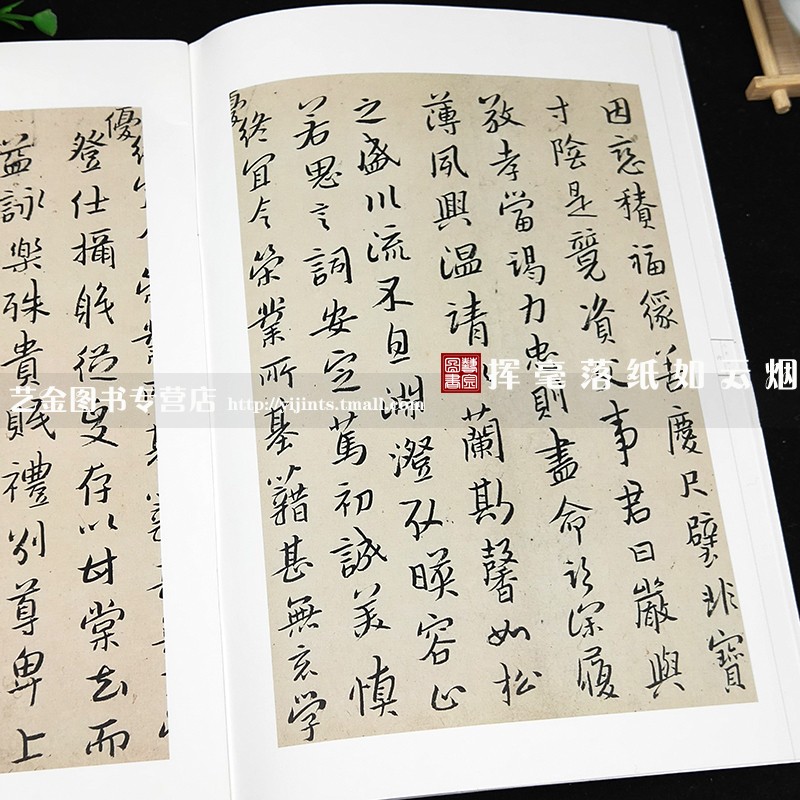 因惡積福緣善慶尺璧非寶
寸陰是競資父事君曰嚴與
敬孝當竭力忠則盡命臨深履
薄夙興温清似蘭斯馨如松
之盛川流不息淵澄取暎容止
若思言詞安定篤初誠美慎
終宜令榮業所基藉甚無竟学
優
優
登仕攝職從政存以甘棠去而
益詠樂殊貴賤禮別尊卑上
艺金图书专营店 http://yijints.tmall.com
挥毫落纸如云烟